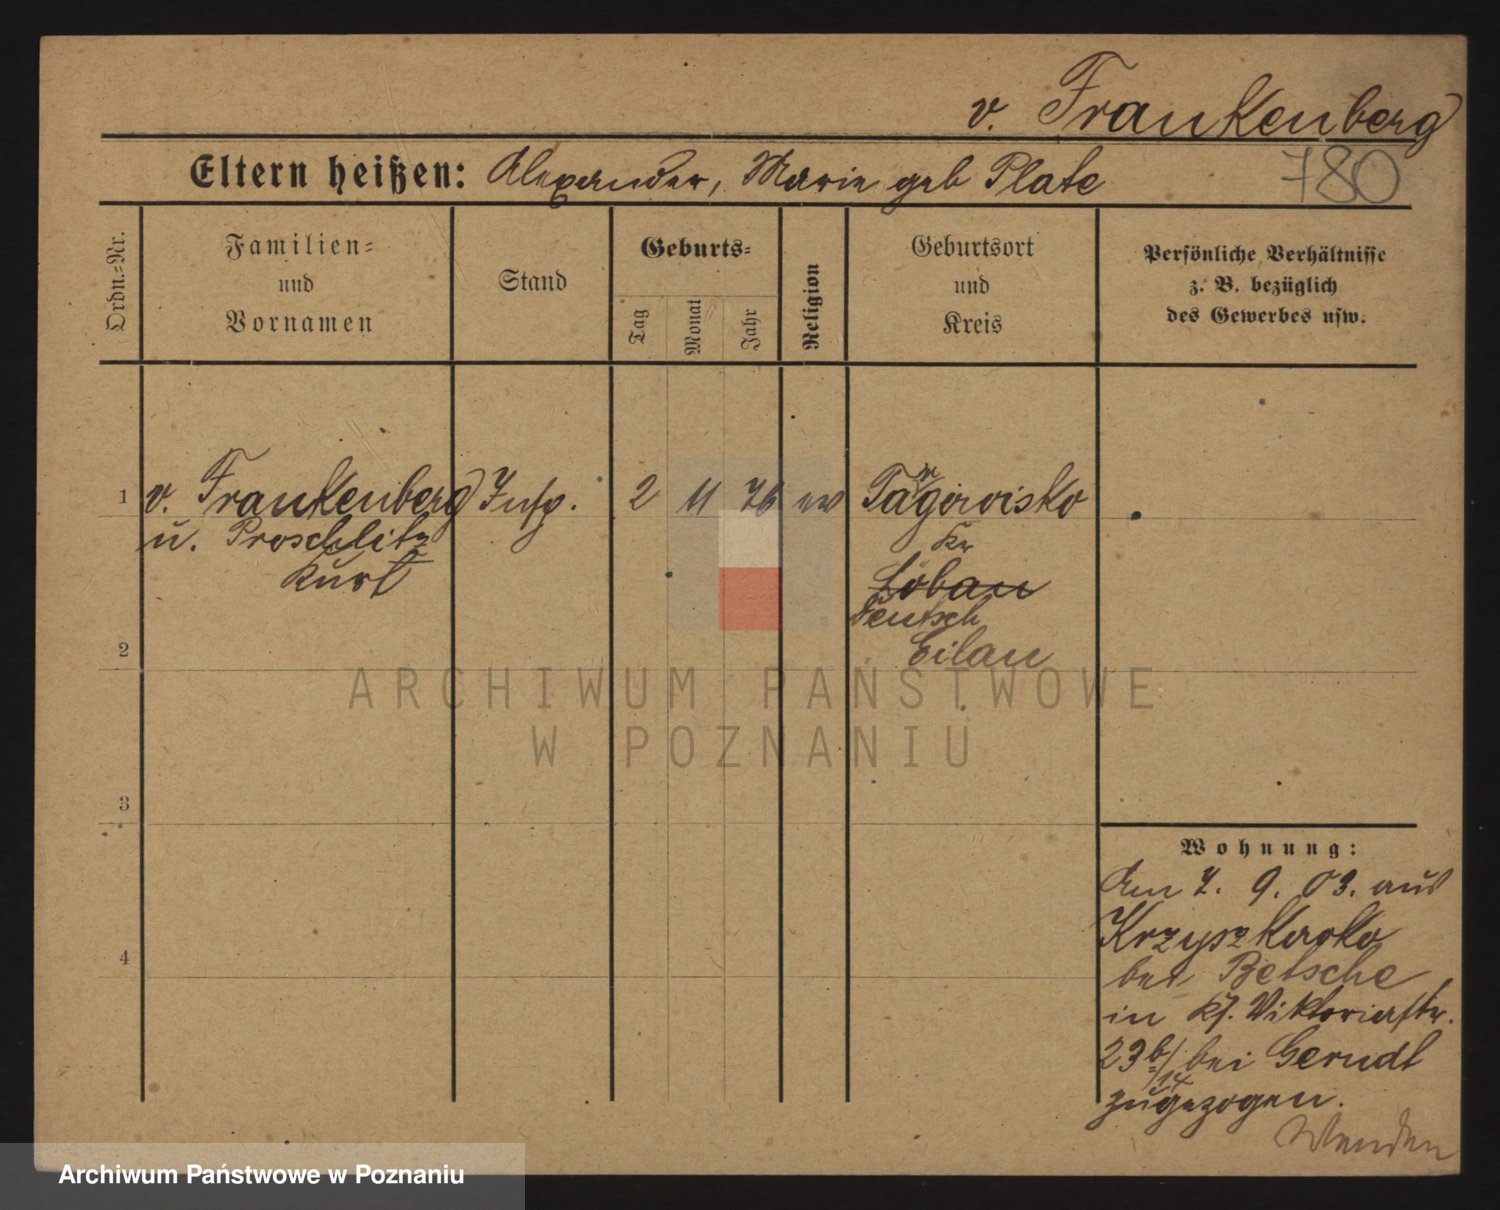 v. Frankenberg
Eltern heißen: Alexander, Marie geb Plate
780
Ordn.=Nr.
Familien=
und
Vornamen
Stand
Geburts=
Tag
Monat
Jahr
Religion
Geburtsort
und
Kreis
Persönliche Verhältnisse
z. B. bezüglich
des Gewerbes usw.
1 v. Frankenberg Insp. 2 11 76 ev
u. Proschlitz
Kurt
Kr
Löbau
Deutsch
Eilau
2
3
4
ARCHIWUM PAŃSTWOWE
W POZNANIU
Wohnung:
Am 7. 9. 03. aus
bei Betsche
in Viktoriastr.
23 b/ bei Gerndt
zugezogen.
Wenden
Archiwum Państwowe w Poznaniu